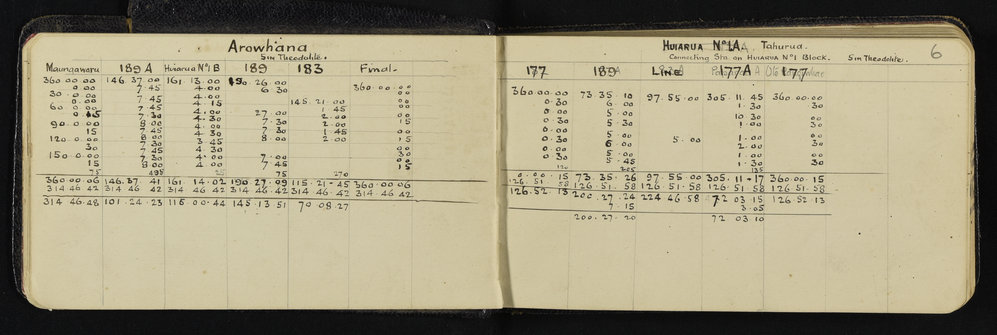 Arowhana
5in Theodolite.
Maungawaru 189 A Huiarua No 1 B 189 183 Final.
360 00 00 146 37 00 161 13 00 190 26 00 360 00 00
0 00 7 45 4 00 6 30 00
30 0 00 7 45 4 00 00
0 00 7 45 4 15 145 21 00 00
60 0 00 7 45 4 00 27 00 1 45 00
0 15 7 30 4 00 7 30 2 00 15
90 0 00 8 00 4 00 7 30 2 00
15 7 45 4 30 7 30 1 45 00
120 0 00 8 00 3 45 8 00 2 00 15
30 7 45 4 30 00
150 0 00 7 30 4 00 7 00 30
15 8 00 4 00 7 45 15
75 495 25 75 270
360 00 06 146 37 41 161 14 02 190 27 09 115 21 45 360 00 06
314 46 42 314 46 42 314 46 42 314 46 42 314 46 42 314 46 42
314 46 48 101 24 23 116 00 44 145 13 51 70 08 27
Huiarua No 1A. Tahurua.
Connecting Stn. on Huiarua No 1 Block. 5in Theodolite.
6
177 189A Line 177A 177
360 00 00 73 35 10 97 55 00 305 11 45 360 00 00
0 30 6 00 1 30 30
0 00 5 00 10 30
0 30 5 30 1 00 30
0 00
0 30 5 00 5 00 1 00
0 00 6 00 2 00 30
0 00 5 00 1 00
0 30 5 45 1 30 30
120 205 135
0 00 15 73 35 26 97 55 00 305 11 17 360 00 15
126 51 58 126 51 58 126 51 58 126 51 58 126 51 58
126 52 13 200 27 24 224 46 58 72 03 15 126 52 13
7 15 3 05
200 27 20 72 03 10